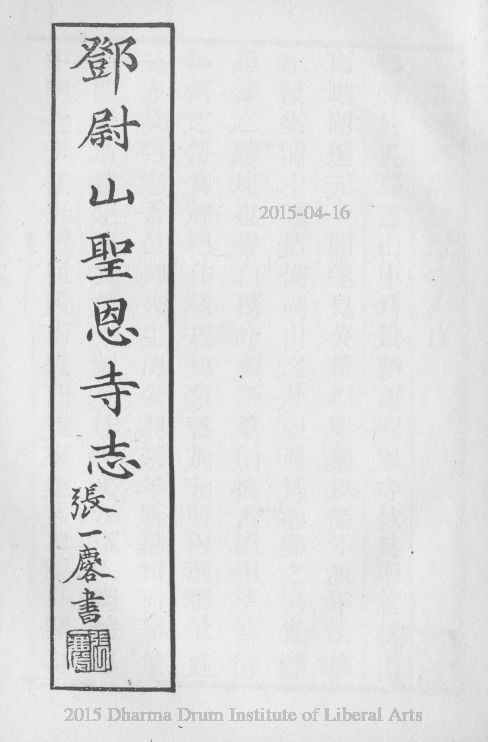 鄧尉山聖恩寺志
張一麐書
2015-04-16
2015 Dharma Drum Institute of Liberal Arts